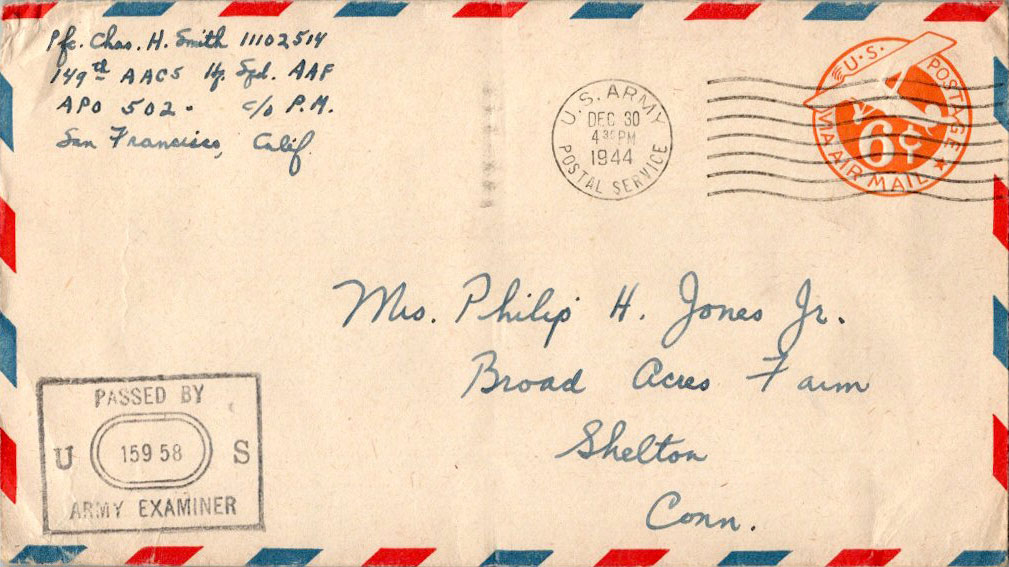 Pfc. Chas. H. Smith 11102514
149th AACS Hq. Sqd. AAF
APO 502. c/o P.M.
San Francisco, Calif.
U.S. ARMY
DEC 30
4 30 PM
1944
POSTAL SERVICE
U.S. POSTAGE
6¢
VIA AIR MAIL
Mrs. Philip H. Jones Jr.
Broad Acres Farm
Shelton
Conn.
PASSED BY
U 159 58 S
ARMY EXAMINER